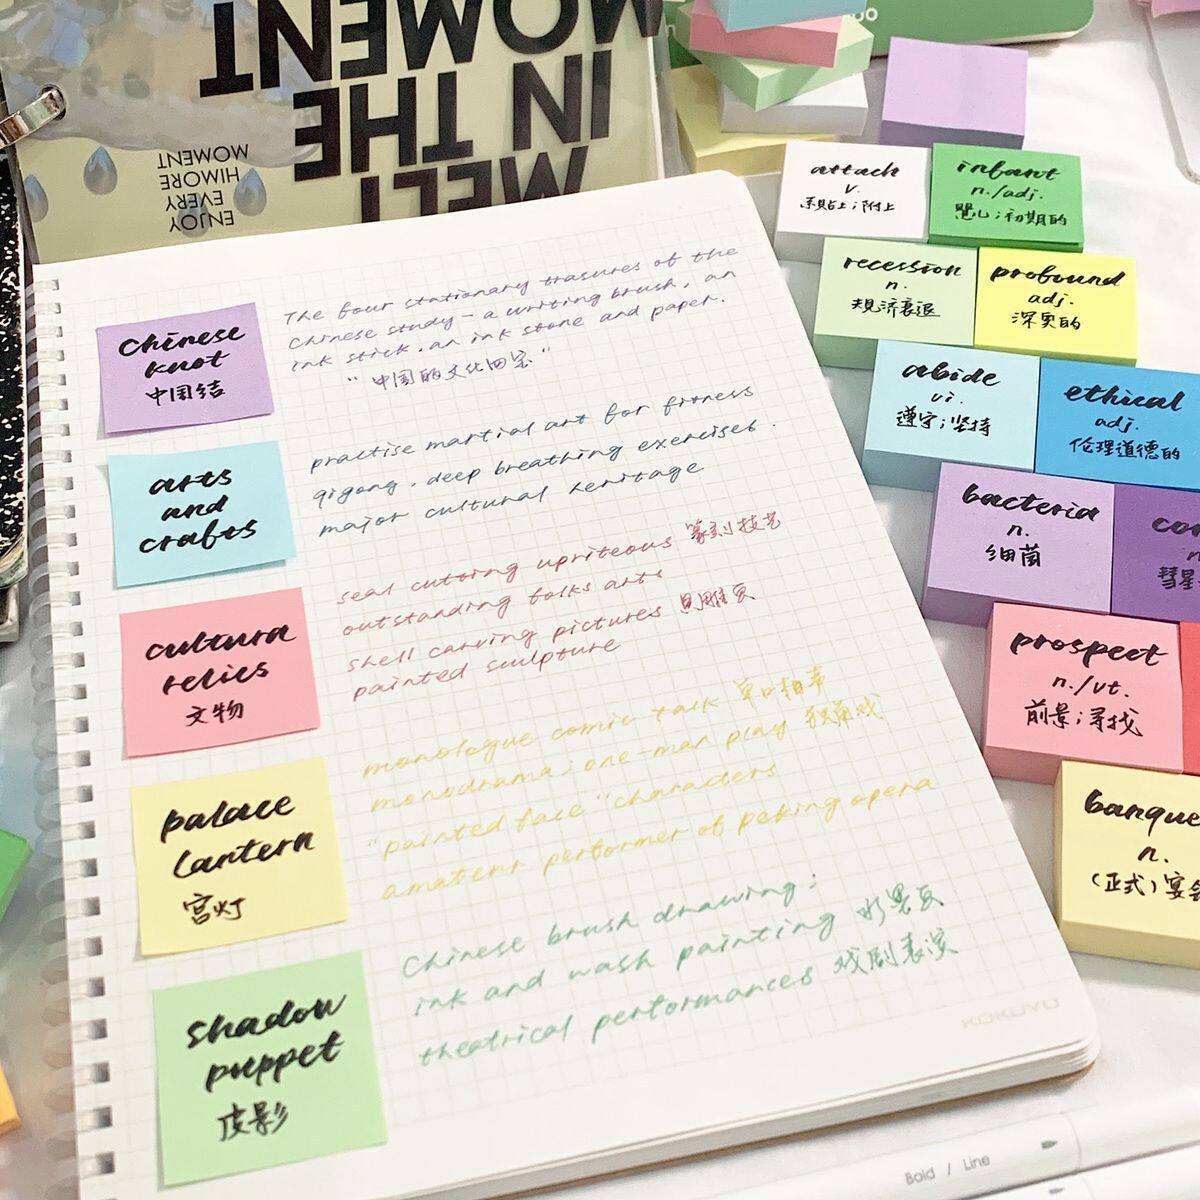 MELT
IN THE
MOMENT
ENJOY
EVERY
HIMORE
MOMENT
chinese
knot
中国结
The four stationary trasures of the
chinese study - a writing brush, an
ink stick, an ink stone and paper.
"中国的文化四宝"
arts
and
crafts
practise martial art for fitness
qigong, deep breathing exercises.
major cultural heritage
cultura
relics
文物
seal cutting upriteous 篆刻技艺
outstanding folks arts
shell carving pictures 贝雕页
painted sculpture
palace
lantern
宫灯
monologue comic talk 单口相声
monodrama; one-man play 独角戏
"painted face" characters
amateur performer of peking opera
shadow
puppet
皮影
Chinese brush drawing;
ink and wash painting 水墨页
theatrical performances 戏剧表演
KOKUYO
attach
v.
系贴上;附上
infant
n./adj.
婴儿;初期的
recession
n.
规济衰退
profound
adj.
深奥的
abide
vi.
遵守;坚持
ethical
adj.
伦理道德的
bacteria
n.
细菌
com
n
彗星
prospect
n./vt.
前景;寻找
banque
n.
(正式)宴会
Bold / Line